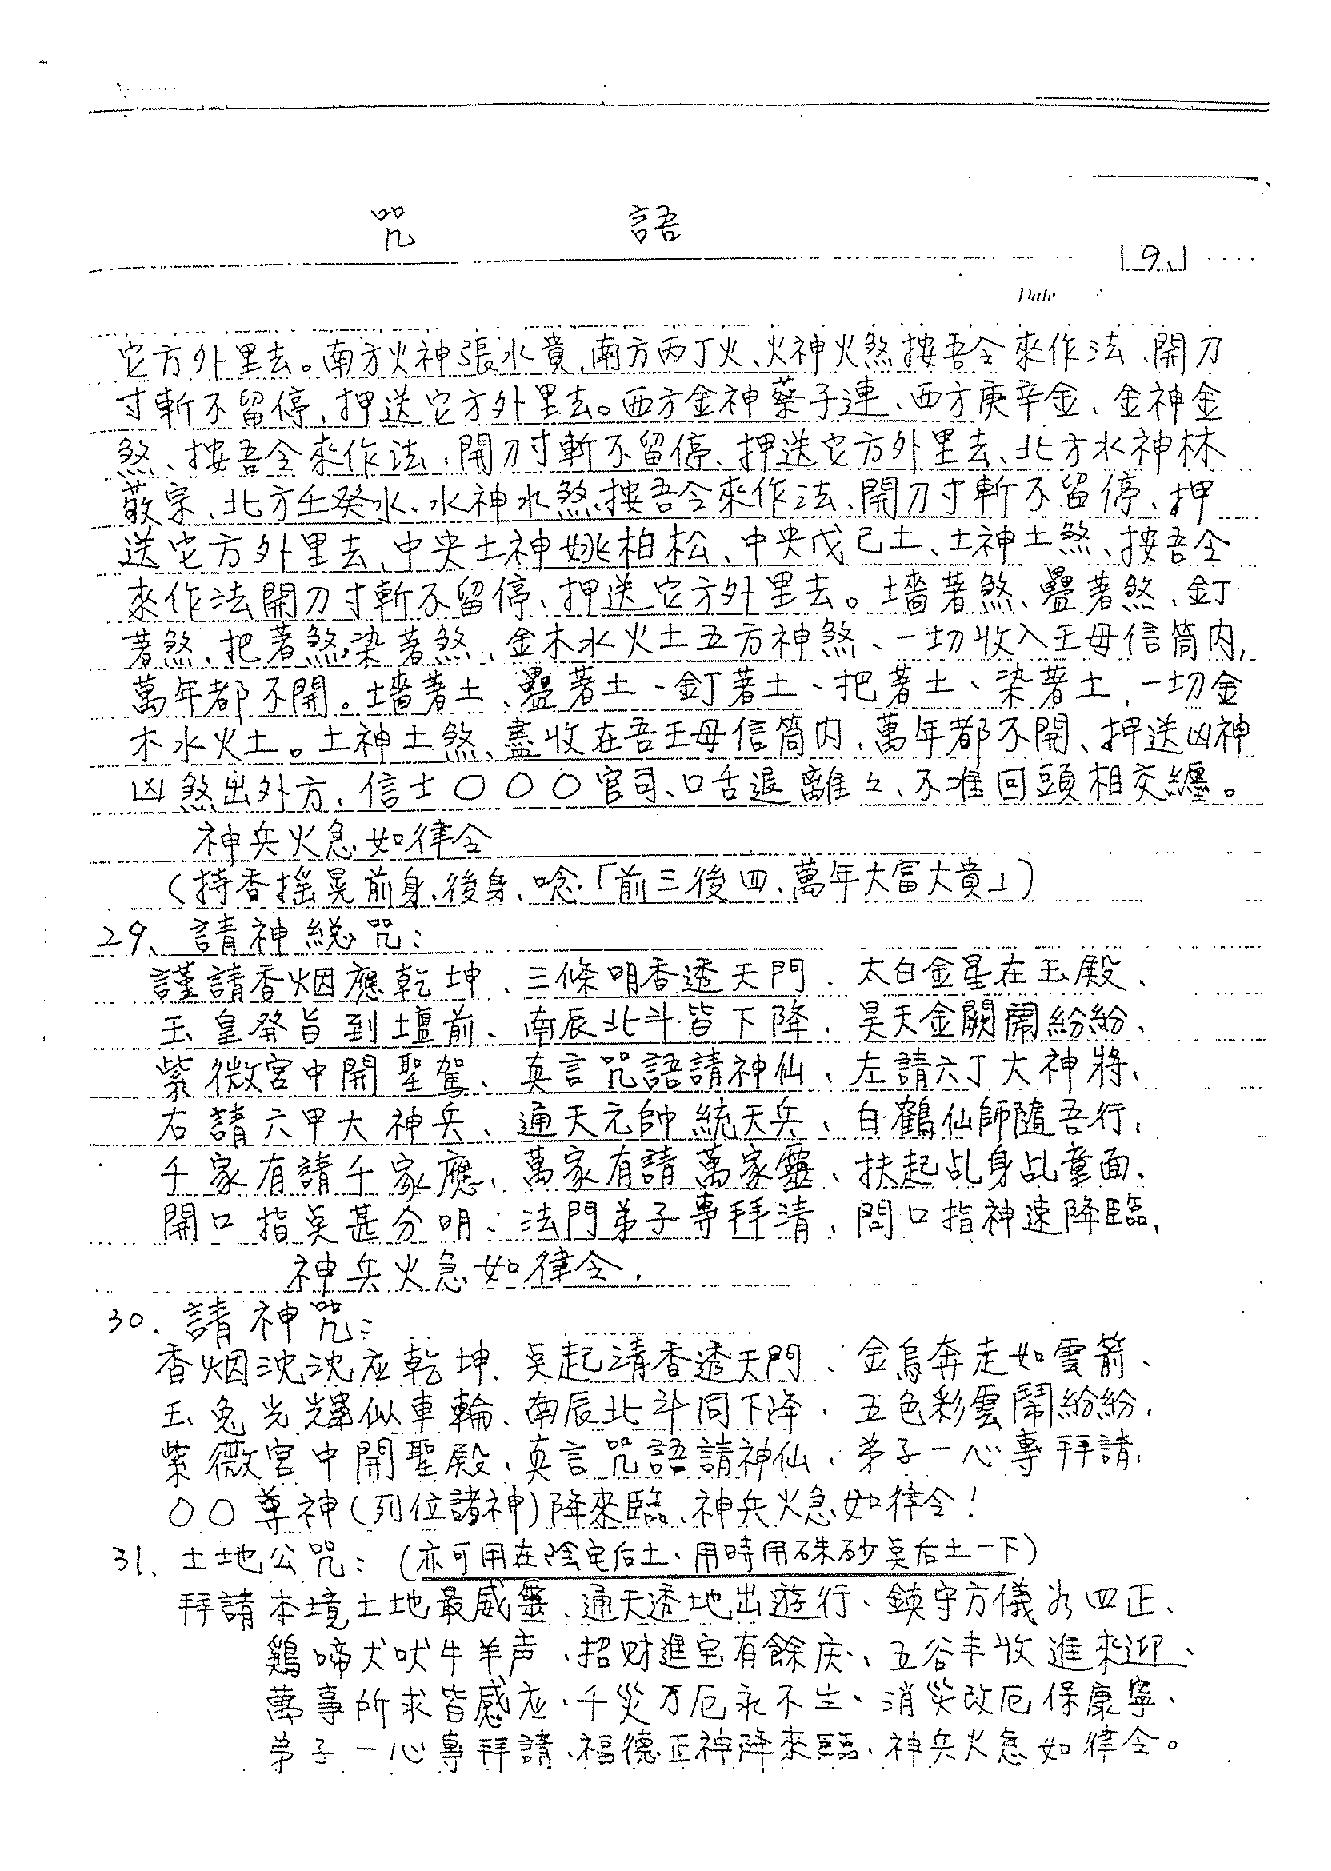 咒 語
9
Date
它方外里去。南方火神張水貴、南方丙丁火、火神火煞按吾令來作法、開刀
寸斬不留停、押送它方外里去。西方金神蔡子連、西方庚辛金、金神金
煞、按吾令來作法、開刀寸斬不留停、押送它方外里去、北方水神林
敬宗、北方壬癸水、水神水煞、按吾令來作法、開刀寸斬不留停、押
送它方外里去、中央土神姚柏松、中央戊己土、土神土煞、按吾令
來作法開刀寸斬不留停、押送它方外里去。墻著煞、疊著煞、釘
著煞、把著煞、染著煞、金木水火土五方神煞、一切收入王母信筒内,
萬年都不開。墻著土、疊著土、釘著土、把著土、染著土、一切金
木水火土。土神土煞、盡收在吾王母信筒内、萬年都不開、押送凶神
凶煞出外方、信士〇〇〇官司、口舌退離々、不准回頭相交纏。
神兵火急如律令
(持香搖晃前身、後身、唸「前三後四、萬年大富大貴」)
29、請神総咒:
謹請香烟應乾坤、三條明香透天門、太白金星在玉殿、
玉皇發旨到壇前、南辰北斗皆下降、昊天金闕鬧紛紛、
紫微宮中開聖駕、真言咒語請神仙、左請六丁大神將、
右請六甲大神兵、通天元帥統天兵、白鶴仙師隨吾行、
千家有請千家應、萬家有請萬家靈、扶起乩身乩童面、
開口指吳甚分明、法門弟子專拜清、問口指神速降臨、
神兵火急如律令.
30. 請神咒:
香烟沈沈应乾坤、吳起清香透天門、金烏奔走如雲箭、
玉兔光輝似車輪、南辰北斗同下降、五色彩雲鬧紛紛、
紫薇宮中開聖殿、真言咒語請神仙、弟子一心專拜請、
〇〇尊神(列位諸神)降來臨、神兵火急如律令!
31、土地公咒:(亦可用在陰宅后土、用時用硃砂吳后土一下)
拜請本境土地最威靈、通天透地出遊行、鎮守方儀為四正、
鷄啼犬吠牛羊声、招财進宝有餘庆、五谷丰收進來迎、
萬事所求皆感应、千災万厄永不生、消災改厄保康寧、
弟子一心專拜請、福德正神降來臨、神兵火急如律令。